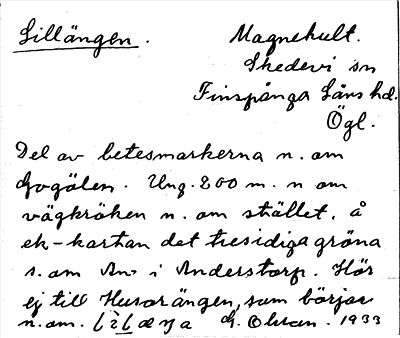 Lillängen.
Magnehult.
Skedevi sn
Finspånga Läns hd.
Ögl.
Del av betesmarkerna n. om
Gogölen. Ung. 200 m. n om
vägkröken n. om stället, å
ek-kartan det tresidiga gröna
s. om An i Anderstorp. Hör
ej till Husarängen, som börjar
n. om. G. Olsson. 1933